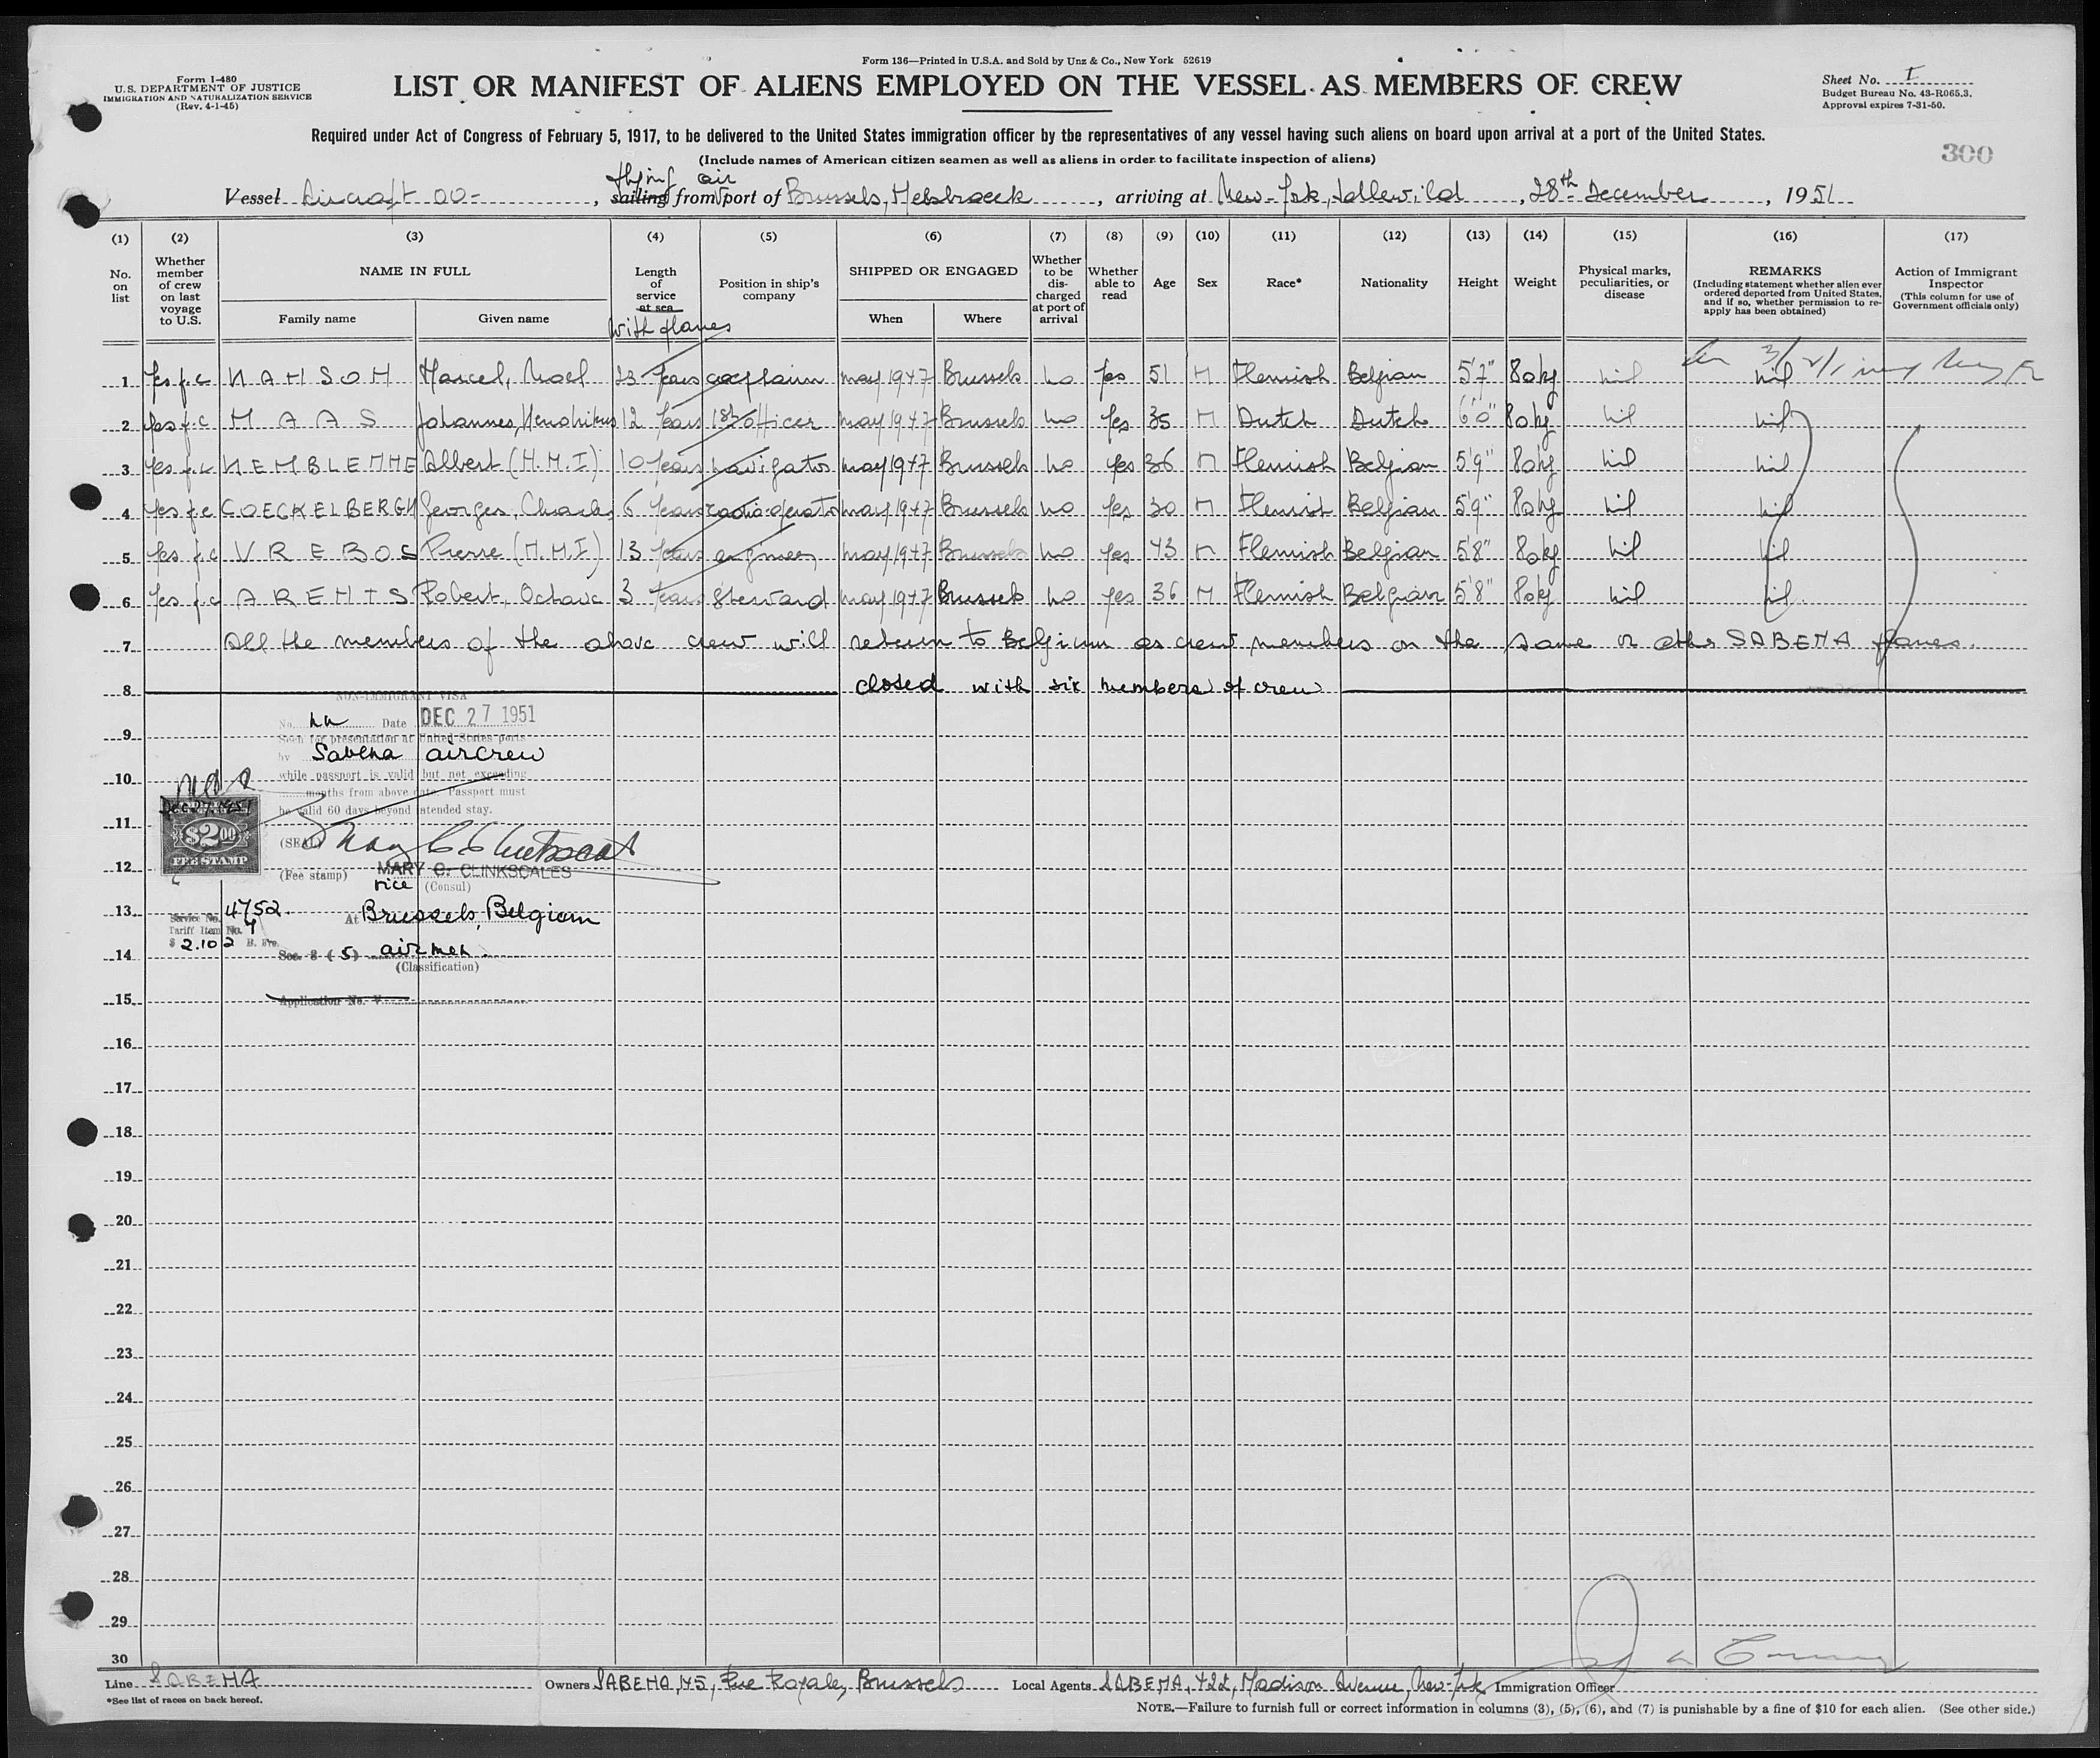 Form 1-480
U.S. DEPARTMENT OF JUSTICE
IMMIGRATION AND NATURALIZATION SERVICE
(Rev. 4-1-45)
Form 136—Printed in U.S.A. and Sold by Unz & Co., New York 52619
LIST OR MANIFEST OF ALIENS EMPLOYED ON THE VESSEL AS MEMBERS OF CREW
Sheet No. I
Budget Bureau No. 43-R065.3.
Approval expires 7-31-50.
Required under Act of Congress of February 5, 1917, to be delivered to the United States immigration officer by the representatives of any vessel having such aliens on board upon arrival at a port of the United States.
(Include names of American citizen seamen as well as aliens in order to facilitate inspection of aliens)
300
flying air
Vessel Aircraft OO- , sailing from port of Brussels, Melsbroeck , arriving at New-York, Idlewild , 28th December , 1951
(1) (2) (3) (4) (5) (6) (7) (8) (9) (10) (11) (12) (13) (14) (15) (16) (17)
No. on list
Whether member of crew on last voyage to U.S.
NAME IN FULL
Family name Given name
Length of service at sea
with planes
Position in ship's company
SHIPPED OR ENGAGED
When Where
Whether to be discharged at port of arrival
Whether able to read
Age
Sex
Race*
Nationality
Height
Weight
Physical marks, peculiarities, or disease
REMARKS
(Including statement whether alien ever ordered deported from United States, and if so, whether permission to reapply has been obtained)
Action of Immigrant Inspector
(This column for use of Government officials only)
1 Yes f.c NANSON Marcel, Noel 23 Years captain may 1947 Brussels no Yes 51 M Flemish Belgian 5'7" 80kg nil nil
2 Yes f.c MAAS Johannes, Hendrikus 12 Years 1st officer may 1947 Brussels no Yes 35 M Dutch Dutch 6'0" 80kg nil nil
3 Yes f.c NEMBLENNE Albert (N.M.I) 10 Years navigator may 1947 Brussels no Yes 36 M Flemish Belgian 5'9" 80kg nil nil
4 Yes f.c COECKELBERGH Georges, Charles 6 Years radio-operator may 1947 Brussels no Yes 30 M Flemish Belgian 5'9" 80kg nil nil
5 Yes f.c VREBOS Pierre (N.M.I) 13 Years engineer may 1947 Brussels no Yes 43 M Flemish Belgian 5'8" 80kg nil nil
6 Yes f.c ARENTS Robert, Octave 3 Years Steward may 1947 Brussels no Yes 36 M Flemish Belgian 5'8" 80kg nil nil
7 All the members of the above crew will return to Belgium as crew members on the same or other SABENA planes.
8 closed with six members of crew
NON-IMMIGRANT VISA
No. Date DEC 27 1951
9
Seen for presentation at United States ports
by Sabena aircrew
10 while passport is valid but not exceeding
months from above date. Passport must
be valid 60 days beyond intended stay.
Dec 27 1951
$2.00
FEE STAMP
11
(SEAL)
12
(Fee stamp) MARY C. CLINKSCALES
vice (Consul)
13
Service No. 4752 At Brussels, Belgium
Tariff Item No. 7
$ 2.10 B. Frs.
14 Sec. 3 (5) airmen.
(Classification)
15 Application No. V
16
17
18
19
20
21
22
23
24
25
26
27
28
29
30
Line SABENA Owners SABENA, 145, Rue Royale, Brussels Local Agents SABENA, 422, Madison Avenue, New-York Immigration Officer
*See list of races on back hereof.
NOTE.—Failure to furnish full or correct information in columns (3), (5), (6), and (7) is punishable by a fine of $10 for each alien. (See other side.)